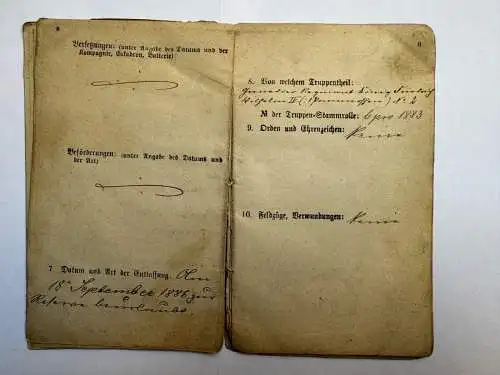 8
Versetzungen: (unter Angabe des Datums und der
Kompagnie, Eskadron, Batterie)
Beförderungen: (unter Angabe des Datums und
der Art)
7 Datum und Art der Entlassung. Am
18ⁿ September 1886 zur
Reserve beurlaubt
8. Von welchem Truppentheil:
Grenadier Regiment König Friedrich
Wilhelm IV (1 Pommersches) No 2
№ der Truppen-Stammrolle: 6 pro 1883
9. Orden und Ehrenzeichen: Keine
10. Feldzüge, Verwundungen: Keine